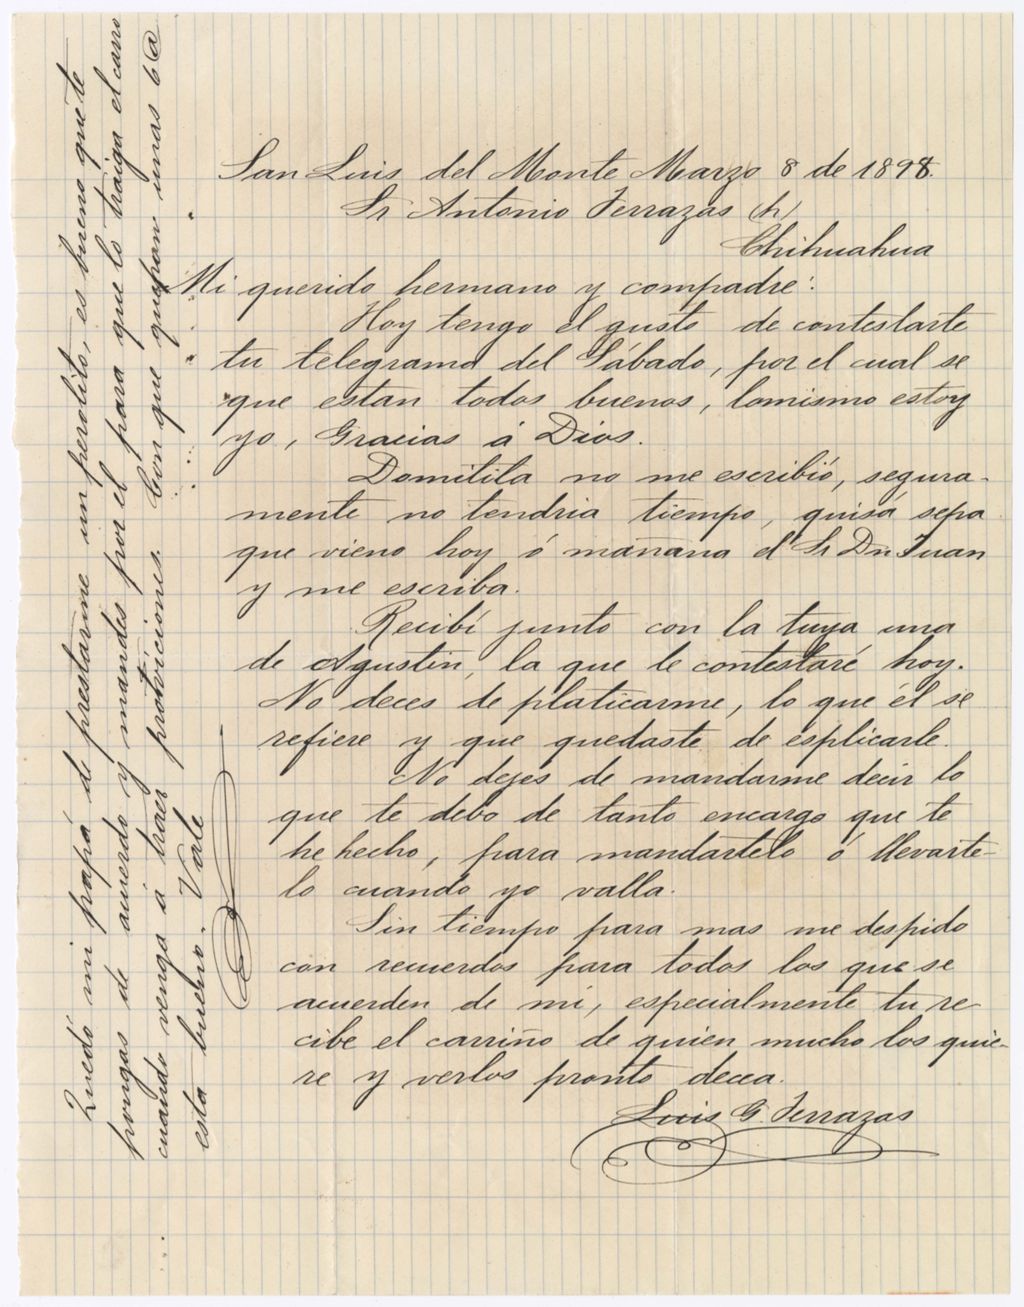 San Luis del Monte Marzo 8 de 1898.
Sr Antonio Terrazas (h)
Chihuahua
Mi querido hermano y compadre:
Hoy tengo el gusto de contestarte
tu telegrama del Sábado, por el cual se
que estan todos buenos, lomismo estoy
yo, Gracias á Dios.
Domitita no me escribió, segura-
mente no tendria tiempo, quisá sepa
que vieno hoy ó mañana el Sr Dn Juan
y me escriba.
Recibí junto con la tuya una
de Agustin, la que le contestaré hoy.
No deces de platicarme, lo que él se
refiere y que quedaste de esplicarle.
No dejes de mandarme decir lo
que te debo de tanto encargo que te
he hechó, para mandartelo ó llevarte-
lo cuando yo valla.
Sin tiempo para mas me despido
con recuerdos para todos los que se
acuerden de mi, especialmente tu re-
cibe el carriño de quien mucho los quie-
re y verlos pronto decea.
Luis G. Terrazas
Quedó mi papá de prestarme un perolito, es bueno que te
pongas de acuerdo y mandes por el para que lo traiga el carro
cuando venga á traer províciones. Con que quepan unas 6 @
está bueno. Vale